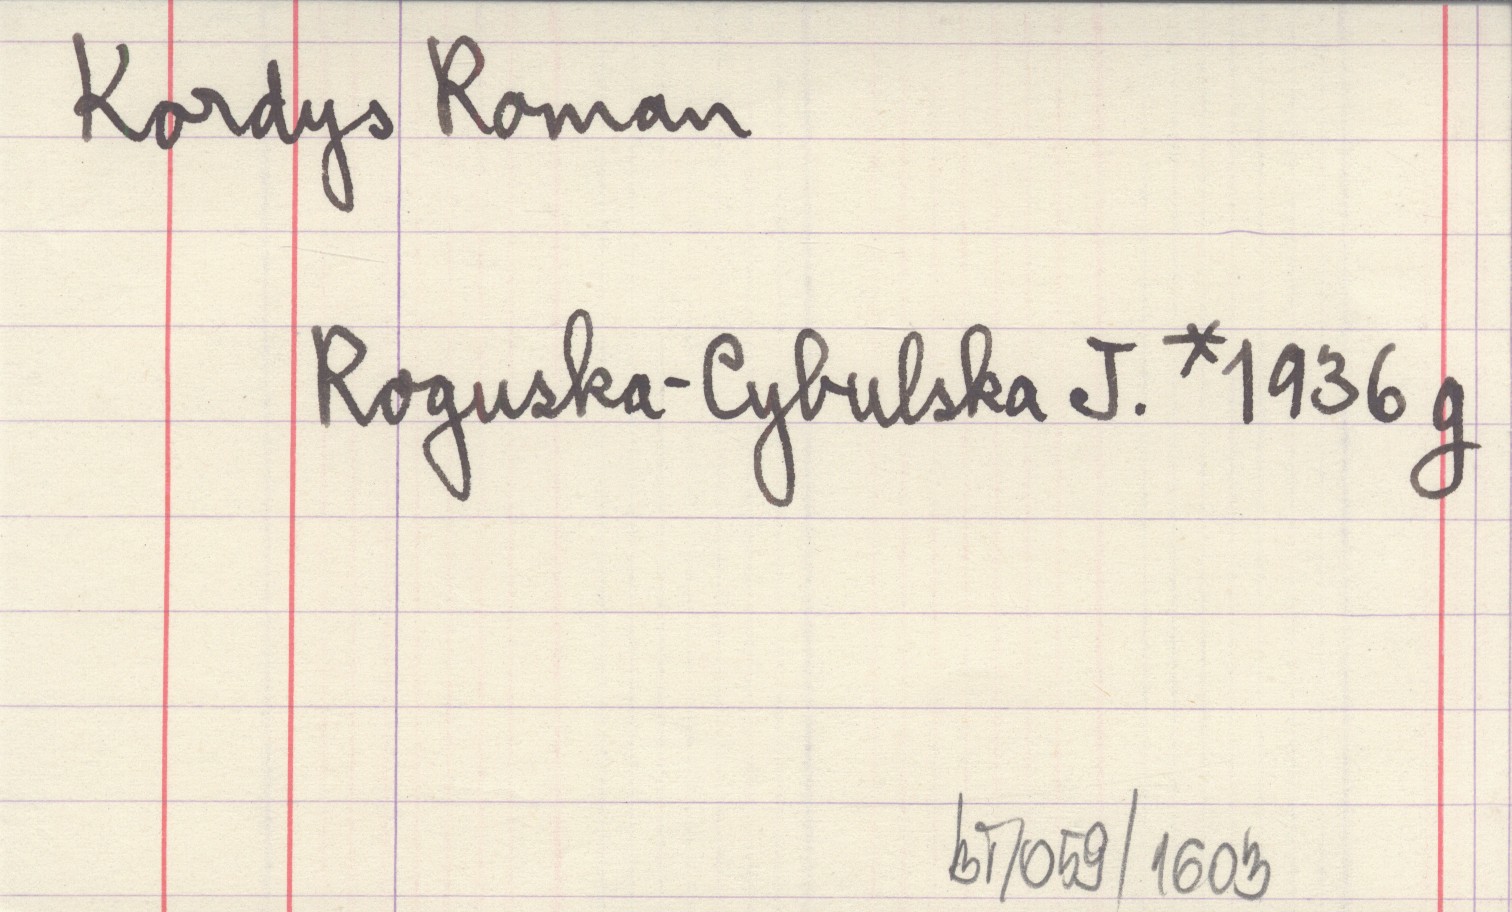 Kordys Roman
Roguska-Cybulska J. *1936 g
bT/059/1603